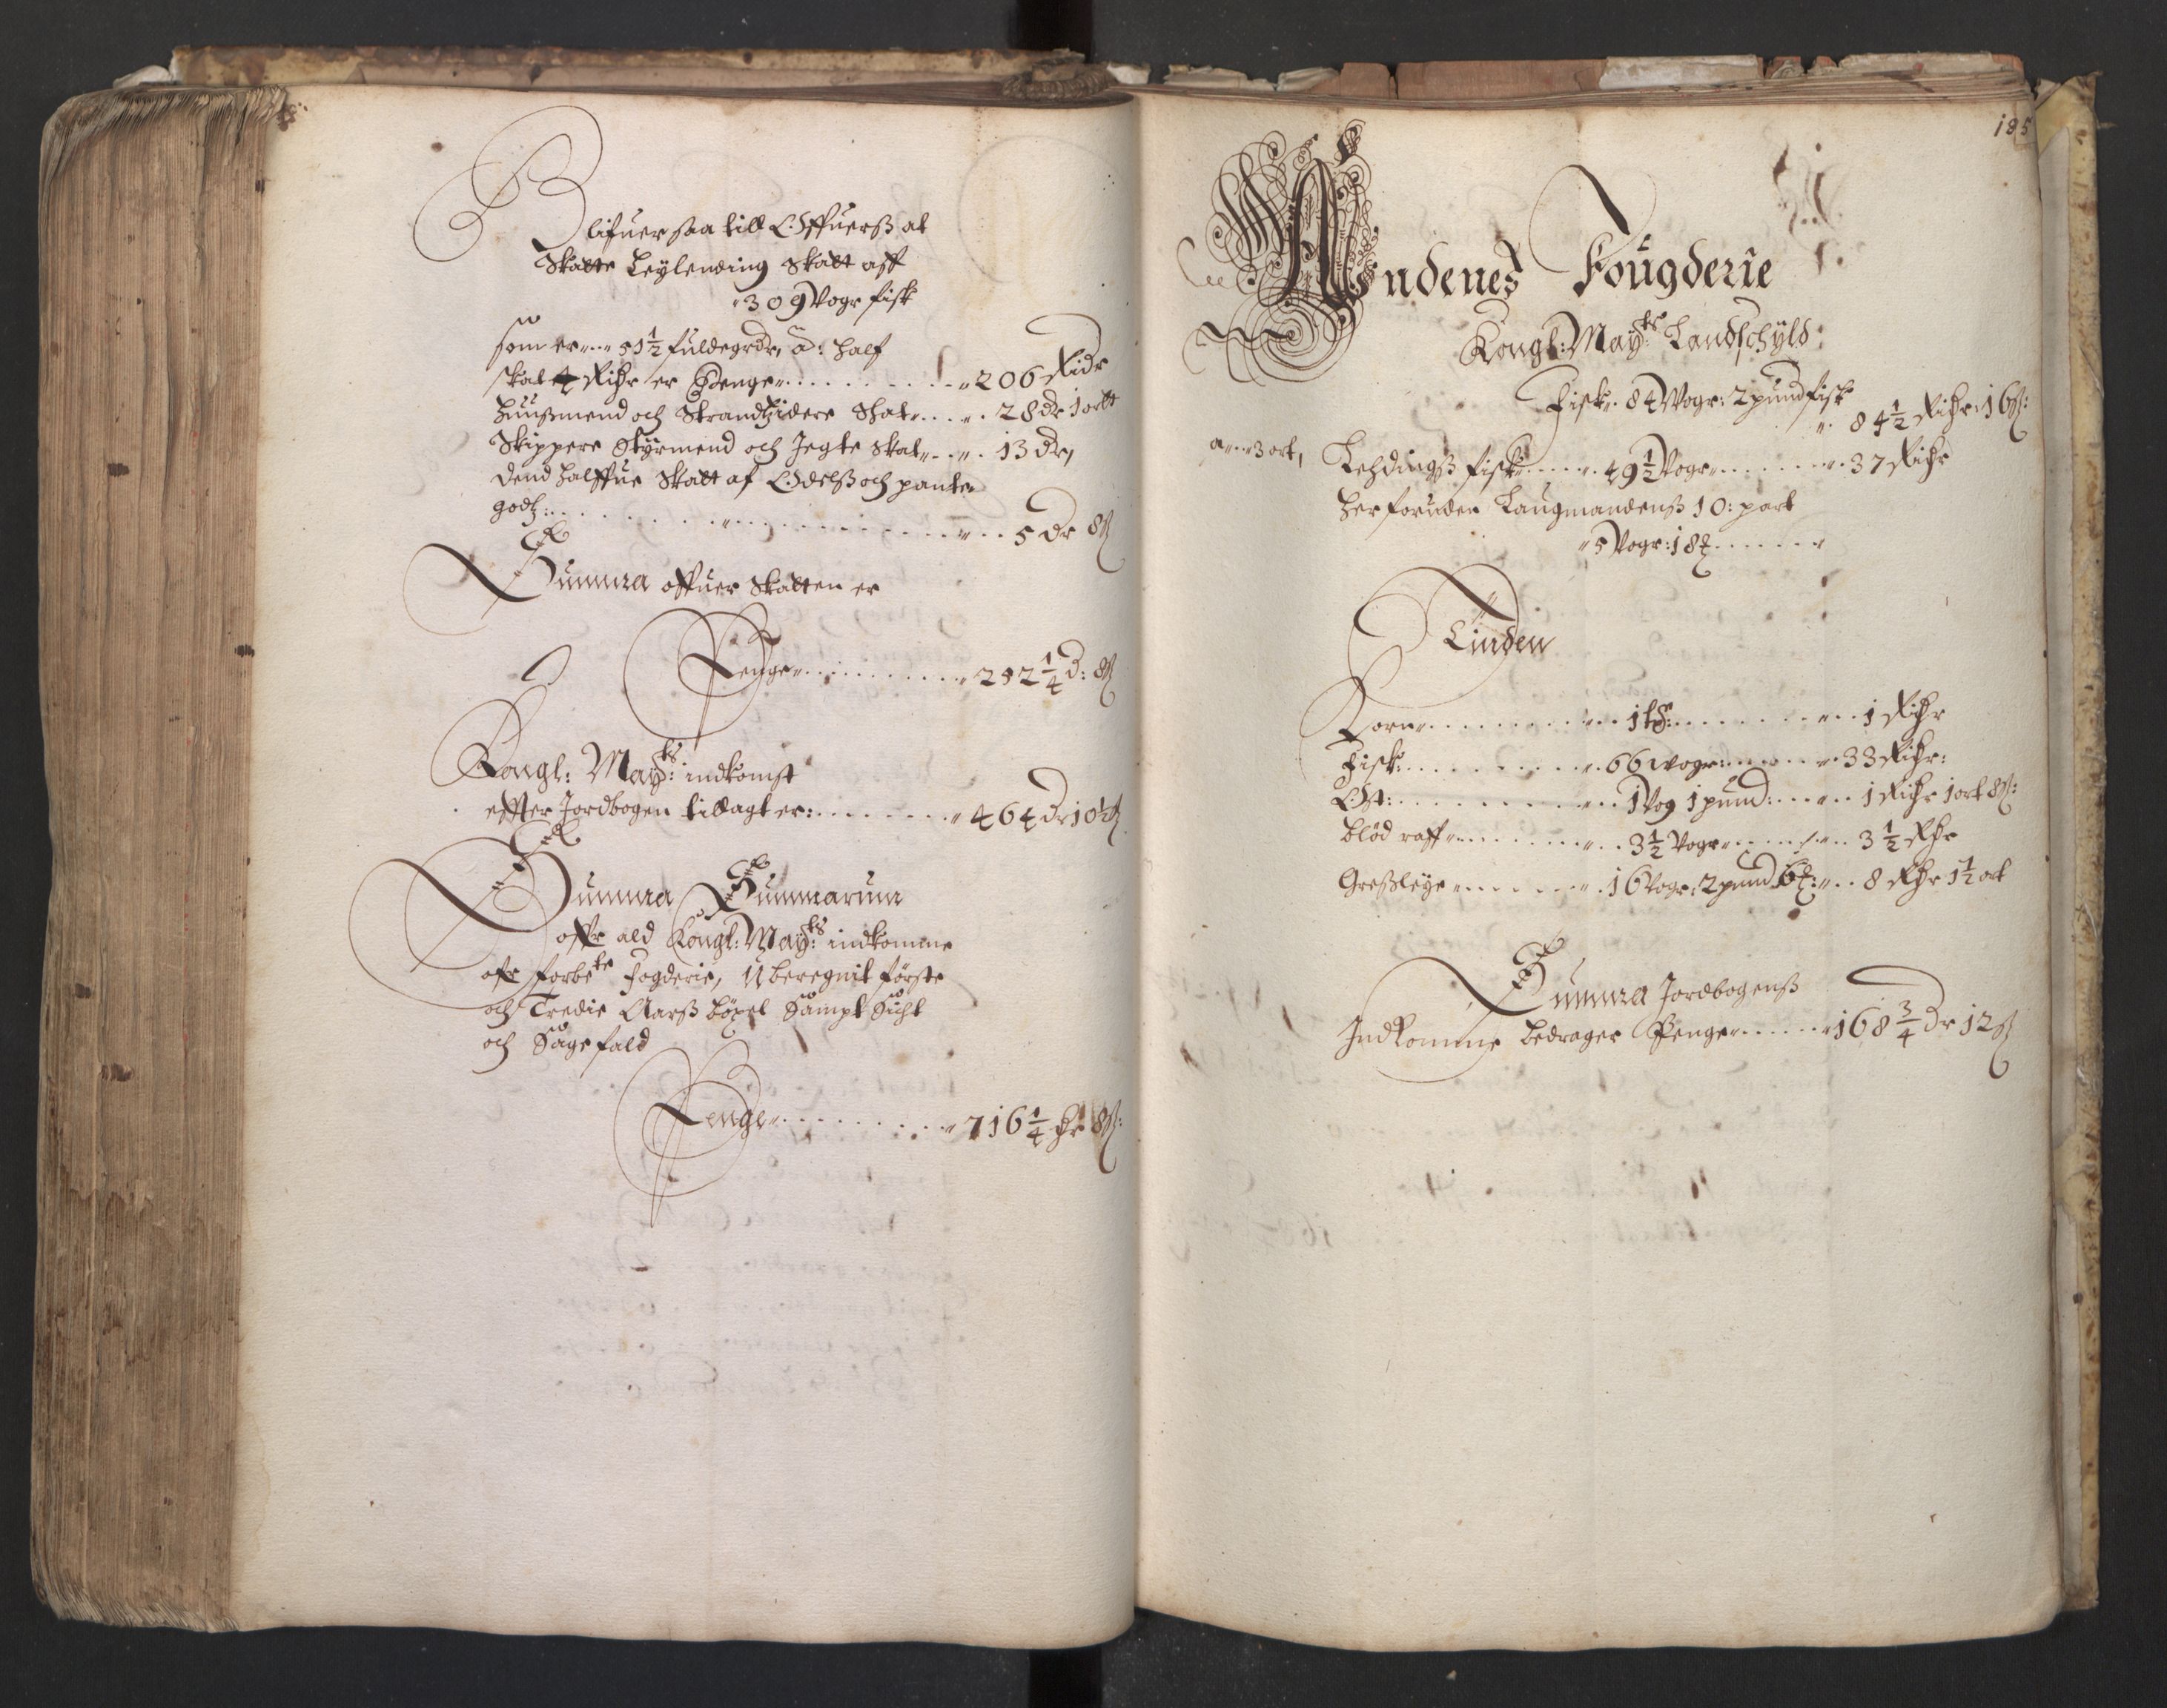 Blifuer saa till Offuerß at
Skatte Leylending Skatt aff
309 Vogr fisk
som er 51½ fuldegrdr, a: half
skat 4 Richr er Penge 206 Ridr
Huußmend och Strandsidere Skat 28 dr 1 ortt
Skippere Styrmend och Jegte Skat 13 dr,
Dend halffue Skatt af Odelß och pante
godtz: 5 dr 8 ß
Summa offuer Skatten er
Penge 252¼ d: 8 ß
Kongl: May:ts indkomst
effter Jordbogen tillagt er: 464 dr 10½ ß
Summa Summarum
offr ald Kongl: May:ts indkomme
afr forbete Fogderie, Uberegnit förste
och Tredie Aarß böxel Sampt Sicht
och Sagefald
Penge 716¼ dr 8 ß:
185
Andenes Fougderie
Kongl: May:ts Landschyld:
Fisk 84 Vogr: 2 pund fisk
84½ Richr: 16 ß:
a 3 ort,
Lehdingß fisk 49½ Vogr 37 Richr
Herforuden Laugmandenß 10: part
5 Vogr: 18 ℔
Tinden
Korn 1 tß: 1 Richr
Fisk: 66 wogr: 33 Richr:
Ost: 1 Vog 1 pund: 1 Richr 1 ort 8 ß:
Blöd raff 3½ Vogr 3½ Rhr
Greßleye 16 Vogr: 2 pund 6 ℔: 8 Rhr 1½ ort
Summa Jordbogenß
Indkomme bedrager Penge 168¾ dr 12 ß